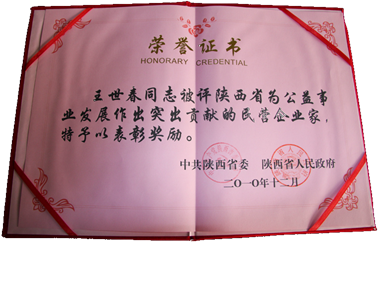 荣誉证书
HONORARY CREDENTIAL
王世春同志被评陕西省为公益事
业发展作出突出贡献的民营企业家，
特予以表彰奖励。
中共陕西省委 陕西省人民政府
二〇一〇年十二月